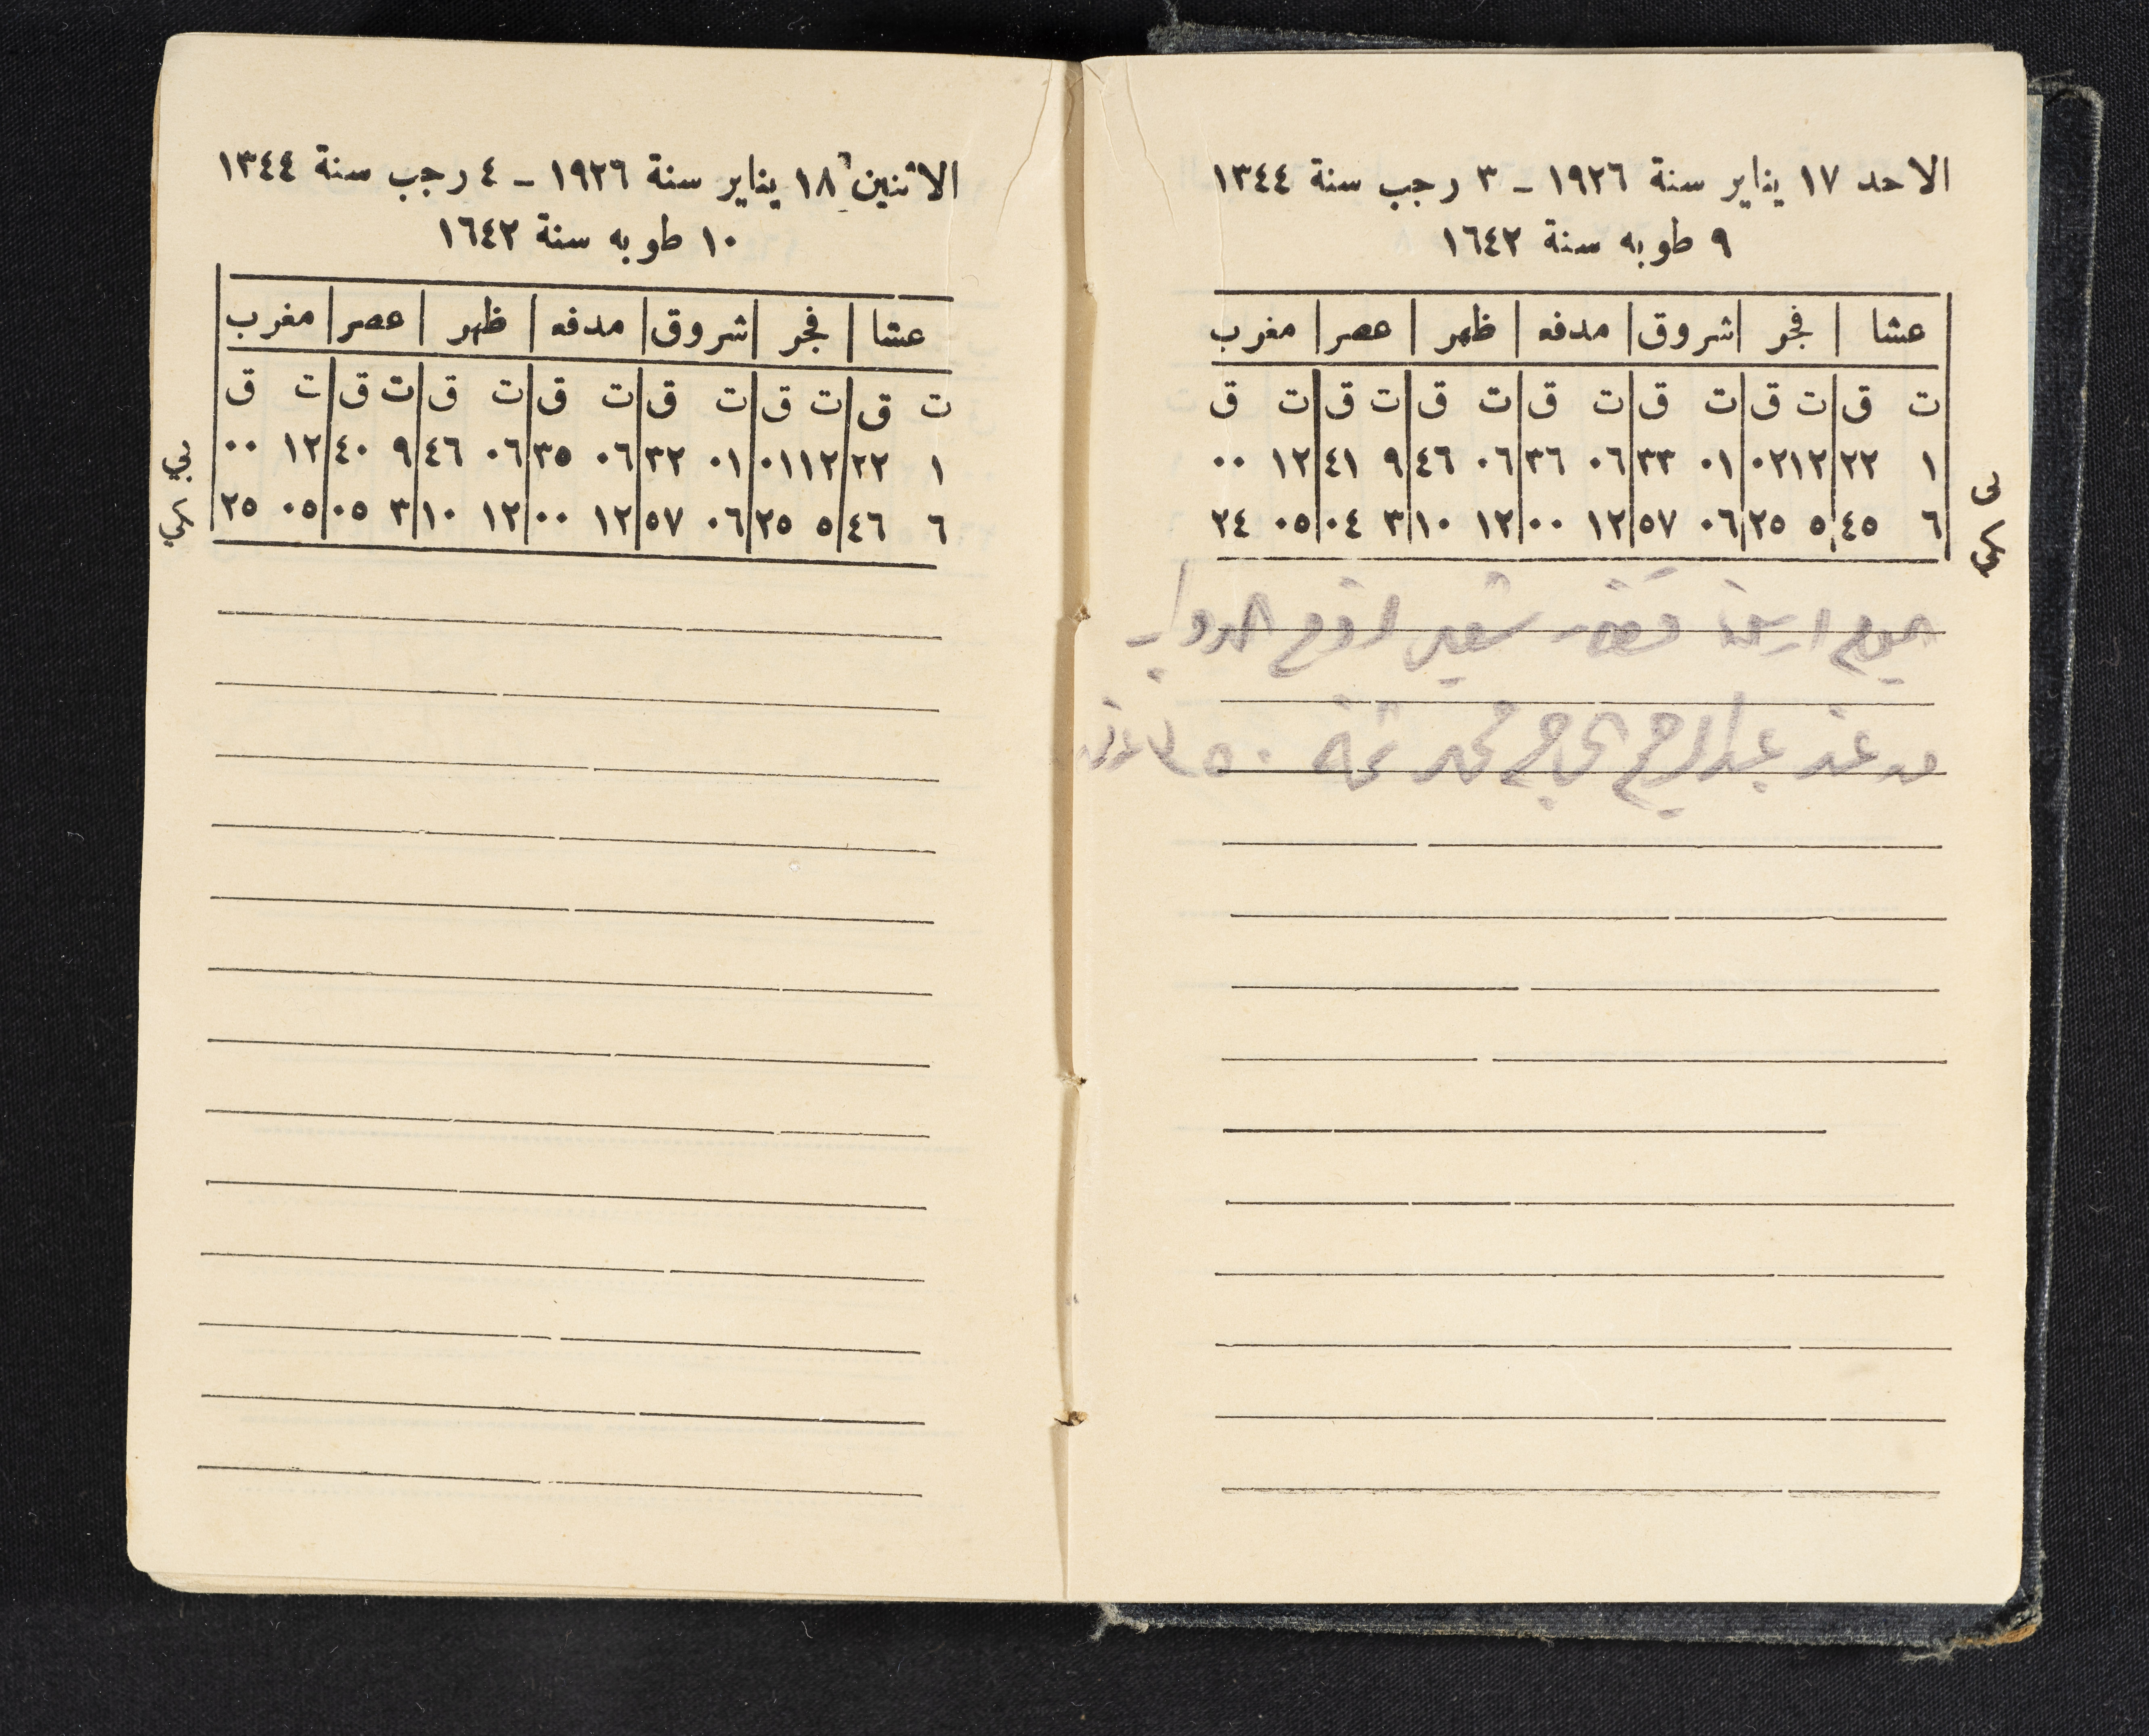 الاحد ١٧ يناير سنة ١٩٢٦ - ٣ رجب سنة ١٣٤٤
٩ طوبه سنة ١٦٤٢
عشا فجر شروق مدفع ظهر عصر مغرب
ت ق ت ق ت ق ت ق ت ق ت ق ت ق
١ ٢٢ ١٢ ٠٢ ٠١ ٣٣ ٠٦ ٣٦ ٠٦ ٤٦ ٩ ٤١ ١٢ ٠٠
٦ ٤٥ ٥ ٢٥ ٠٦ ٥٧ ١٢ ٠٠ ١٢ ١٠ ٣ ٠٤ ٠٥ ٢٤
اليوم شعير
من عند عبد الرحيم الحاج محمد
الاثنين ١٨ يناير سنة ١٩٢٦ - ٤ رجب سنة ١٣٤٤
١٠ طوبه سنة ١٦٤٢
عشا فجر شروق مدفع ظهر عصر مغرب
ت ق ت ق ت ق ت ق ت ق ت ق ت ق
١ ٢٢ ١٢ ٠١ ٠١ ٣٢ ٠٦ ٣٥ ٠٦ ٤٦ ٩ ٤٠ ١٢ ٠٠
٦ ٤٦ ٥ ٢٥ ٠٦ ٥٧ ١٢ ٠٠ ١٢ ١٠ ٣ ٠٥ ٠٥ ٢٥